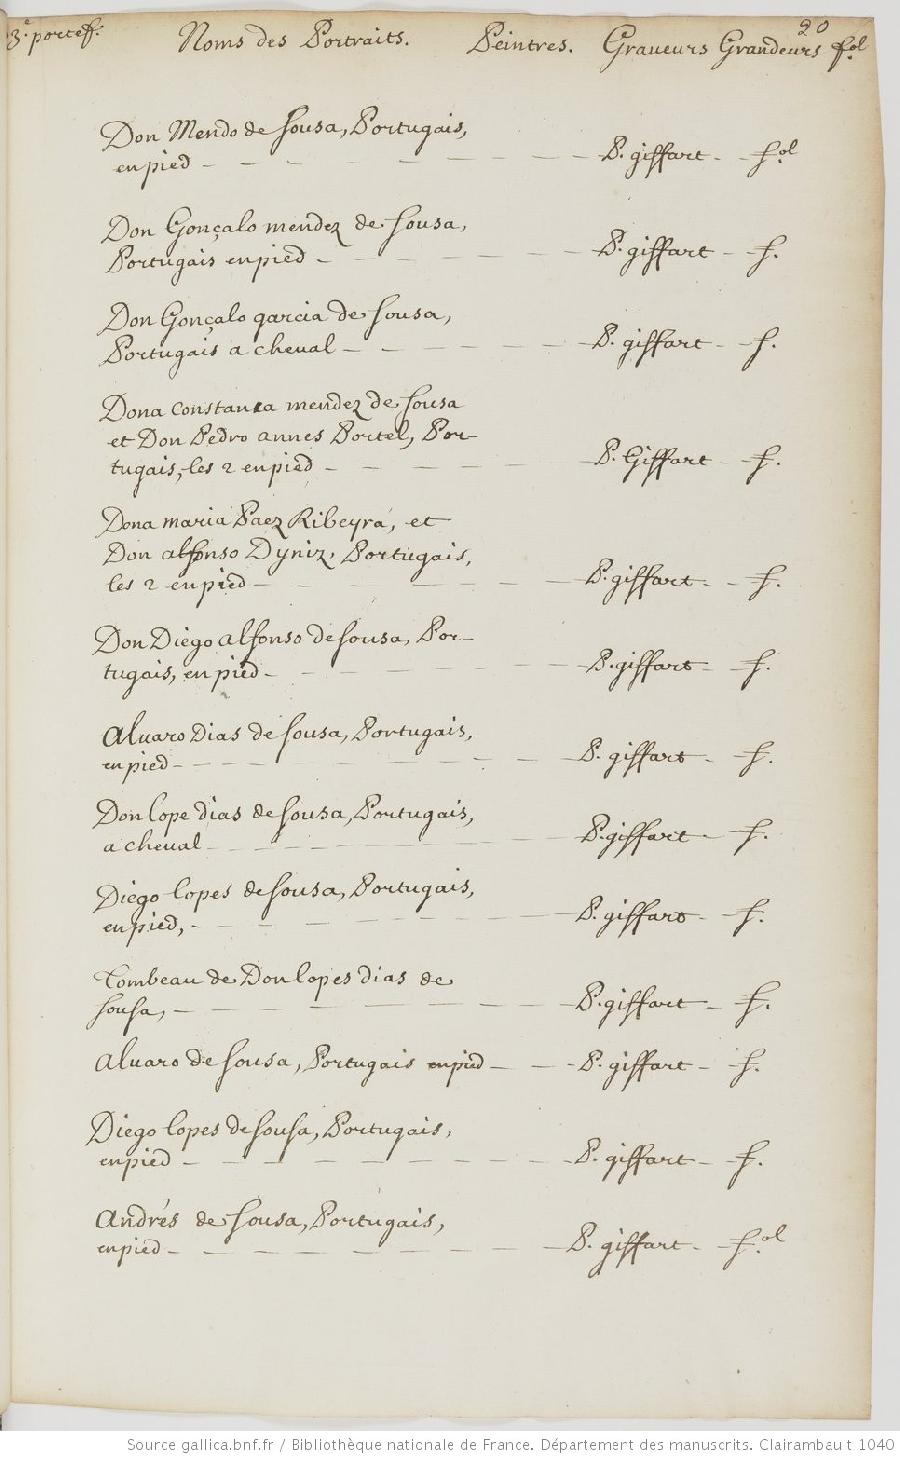 20
3.e portef. Noms des Portraits. Peintres. Graueurs Grandeurs fol.
Don Mendo de Sousa, Portugais,
en pied - P. giffart - fol.
Don Gonçalo mendez de Sousa,
Portugais en pied - P. giffart - f.
Don Gonçalo garcia de Sousa,
Portugais a cheual - P. giffart - f.
Dona constanca mendez de Sousa
et Don Pedro annes Portel, Por-
tugais, les 2 en pied - P. Giffart - f.
Dona maria Paez Ribeyra, et
Don alfonso Dyniz, Portugais,
les 2 en pied - P. giffart - f.
Don Diego alfonso de Sousa, Por-
tugais, en pied - P. giffart - f.
Aluaro Dias de Sousa, Portugais,
en pied - P. giffart - f.
Don lope dias de Sousa, Portugais,
a cheual - P. giffart - f.
Diego lopes de Sousa, Portugais,
en pied, - P. giffart - f.
Tombeau de Don lopes dias de
Sousa, - P. giffart - f.
Aluaro de Sousa, Portugais en pied - P. giffart - f.
Diego lopes de Sousa, Portugais,
en pied - P. giffart - f.
Andrés de Sousa, Portugais,
en pied - P. giffart - fol.
Source gallica.bnf.fr / Bibliothèque nationale de France. Département des manuscrits. Clairambault 1040